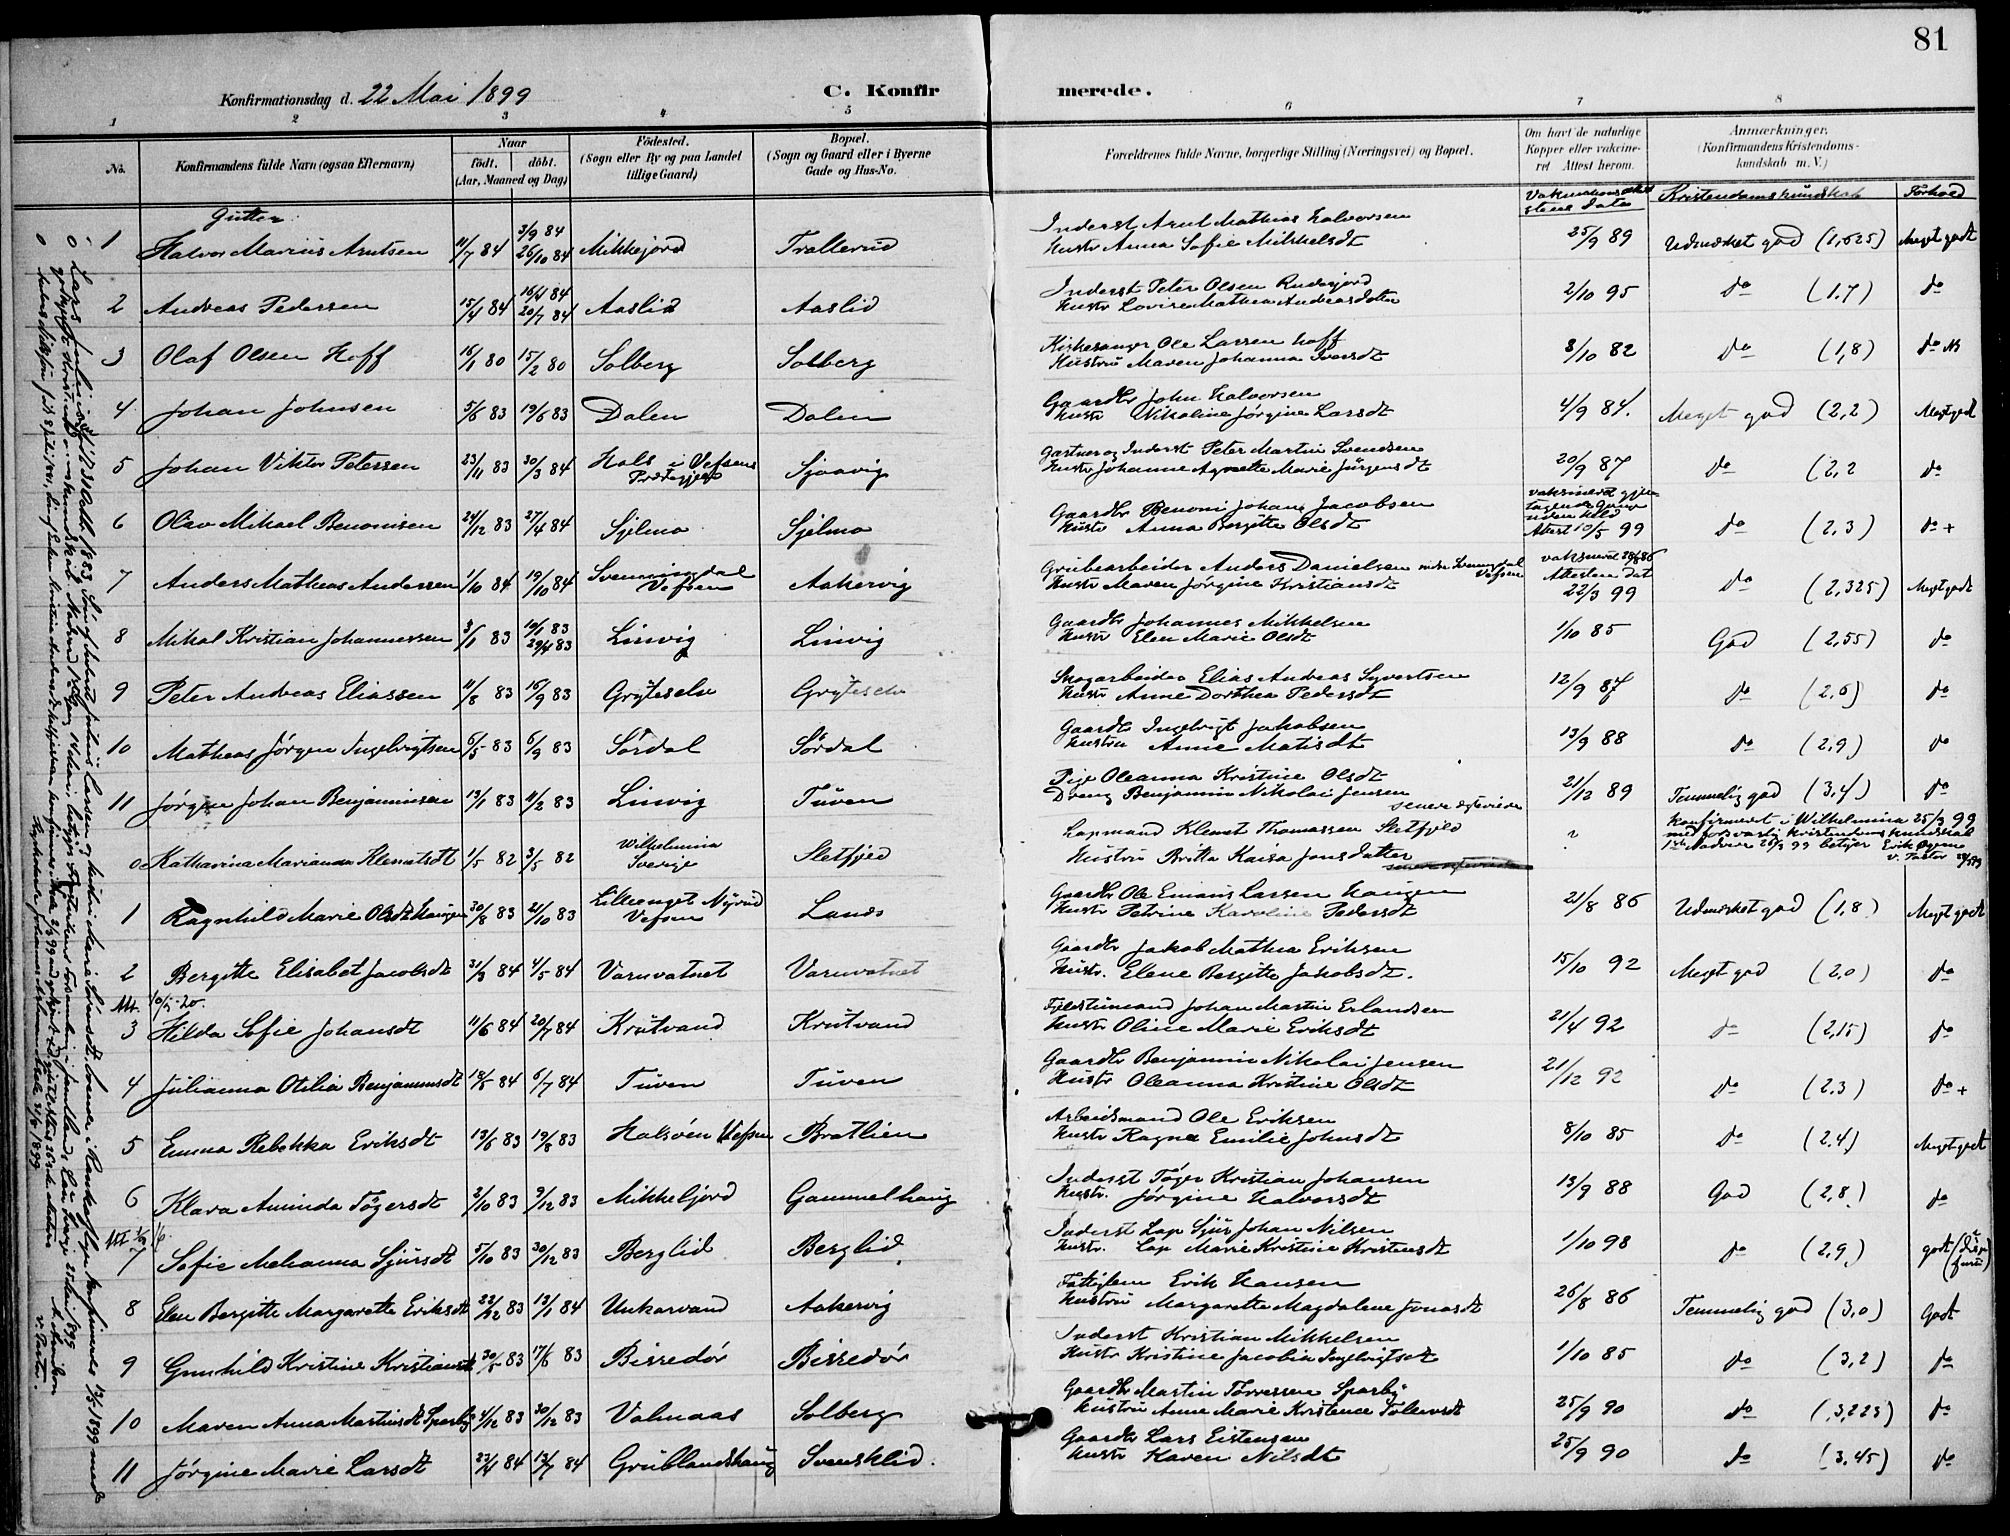 81
Konfirmationsdag d. 22 Mai 1899
C. Konfirmerede.
1 2 3 4 5 6 7 8
No.
Konfirmandens fulde Navn (ogsaa Efternavn)
Naar
födt. döbt.
(Aar, Maaned og Dag)
Födested.
(Sogn eller By og paa Landet
tillige Gaard)
Bopæl.
(Sogn og Gaard eller i Byerne
Gade og Hus-No.
Forældrenes fulde Navne, borgerlige Stilling (Næringsvei) og Bopæl.
Om havt de naturlige
Kopper eller vakcine-
ret Attest herom.
Anmærkninger.
(Konfirmandens Kristendoms-
kundskab m. V.)
stens dato
Kristendomskundskab
Forhold
Gutter
3/9 84
Inderst Arnt Mathias Halvorsen
1 Halvor Marius Arntsen 11/7 84 26/10 84 Mikkejord Trallerud Hustr Anna Sofie Mikkelsdt 25/9 89 Udmærket god (1,625) Meget godt
16/4 84
Inderst Peter Olsen Rudsjord
2 Andreas Pedersen 15/4 84 20/7 84 Aaslid Aaslid Hustr Lovise Mathea Andreasdatter 2/10 95 do (1.7) do
Kirkesanger Ole Larsen Hoff
3 Olaf Olsen Hoff 16/1 80 15/2 80 Solberg Solberg Hustru Maren Johanna Ivarsdt 8/10 82 do (1,8) do
Gaardbr John Halvorsen
4 Johan Johnsen 5/6 83 19/6 83 Dalen Dalen Hustr Nikoline Jörgine Larsdt 4/9 84. Meget god (2,2) Meget godt
Gartner og Inderst Peter Martin Svendsen
5 Johan Viktor Petersen 23/11 83 30/3 84 Hals i Vefsens Sjaavig Hustr Johanne Agnette Marie Jürgensdt 20/9 87 do (2,2 do
Gaardbr Benoni Johan Jacobsen
6 Olav Mikael Benonisen 24/12 83 27/4 84 Sjelmo Sjelmo Hustr Anna Bergitte Olsdt
Attest 10/5 99 do (2,3) do +
Grubearbeider Anders Danielsen
7 Anders Mathias Andersen 1/10 84 19/10 84 Svenningdal Vefsen Aakervig Hustr Maren Jörgine Kristiansdt
Attestens dat
22/3 99 do (2,325) Meget godt
19/1 83
Gaardbr Johannes Mikkelsen
8 Mikal Kristian Johannessen 3/1 83 29/4 83 Linvig Linvig Hustr Elen Marie Olsdt 1/10 85 God (2,55) do
Skogarbeider Elias Andreas Syvertsen
9 Peter Andreas Eliassen 11/8 83 16/9 83 Gryteselv Gryteselv Hustr Anne Dorthea Pedersdt 12/9 87 do (2,6) do
Gaardbr Ingebrigt Jakobsen
10 Matheas Jörgen Ingebrigtsen 6/5 83 6/9 83 Sördal Sördal Hustru Anne Matisdt 13/9 88 do (2,9) do
Pige Oleanna Kristine Olsdt
11 Jörgen Johan Benjaminsen 13/1 83 11/2 83 Linvig Tuven Dreng Benjamin Nikolai Jensen 21/12 89 Temmelig god (3,4) do
Lapmand Klemet Thomassen Sletfjeld
0 Katharina Marianna Klemetsdt 1/5 82 3/5 82 Wilhelmina Sverige Sletfjeld Hustru Britta Kaisa Jonsdatter
Konfirmeret i Wilhelmina 25/3 99
med forsvarlig Kristendoms kundskab
Gaardbr Ole Emaus Larsen Haugen
1 Ragnhild Marie Olsdt Haugen 30/8 83 21/10 83 Lilleenget Nyrud Vefsen Lands Hustr Petrine Karoline Pedersdt 21/8 86 Udmærket god (1,8) Meget godt
Gaardbr Jakob Mathea Eriksen
2 Bergitte Elisabet Jacobsdt 31/3 84 4/5 84 Varnvatnet Varnvatnet Hustr. Elene Bergitte Jakobsdt. 15/10 92 Meget god (2,0) do
Att. 10/5-20.
Fjeldstuemand Johan Martin Erlandsen
3 Hilda Sofie Johansdt 11/6 84 20/7 84 Krutvand Krutvand Hustr Oline Marie Eriksdt 21/4 92 do (2,15) do
Gaardbr Benjamin Nikolai Jensen
4 Julianna Otilia Benjaminsdt 18/5 84 6/7 84 Tuven Tuven Hustr Oleanna Kristine Olsdt 21/12 92 do (2.3) do +
Arbeidsmand Ole Eriksen
5 Emma Rebekka Eriksdt 13/6 83 19/8 83 Halsöen Vefsen Bratlien Hustr Ragna Emilie Johnsdt 8/10 85 do (2.4) Meget godt
Inderst Töger Kristian Johansen
6 Klara Aminda Tögersdt 2/10 83 9/12 83 Mikkeljord Gammelhaug Hustr. Jörgine Halvorsdt 13/9 88 God (2,8) do
Inderst Lap Sjur Johan Nilsen
7 Sofie Melianna Sjursdt 5/10 83 30/12 83 Berglid Berglid Hustr. Lap Marie Kristine Kristensdt 1/10 98 do (2,9) godt
Fattiglem Erik Hansen
8 Elen Bergitte Margarette Eriksdt 22/12 83 13/1 84 Unkarvand Aakervig Hustru Margarette Magdalene Jonasdt 26/8 86 Temmelig god (3,0) Godt
Inderst Kristian Mikkelsen
9 Gunhild Kristine Kristiansdt 30/5 83 17/6 83 Bissedör Bissedör Hustr Kristine Jacobia Ingebrigtsdt 1/10 85 do (3,2) do
Gaardbr Martin Torressen Sparby
10 Maren Anna Martinsdt Sparby 4/12 83 30/12 83 Valmaas Solberg Hustru Anne Marie Kristence Tollevsdt 25/9 90 do (3,225) do
Gaardbr Lars Eistensen
11 Jörgine Marie Larsdt 23/4 84 13/7 84 Grublandshaug Svensklid. Hustr Karen Nilsdt 25/9 90 do (3,45) do